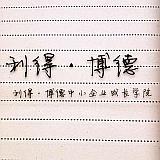 利得·博德
利得·博德中小企业成长学院